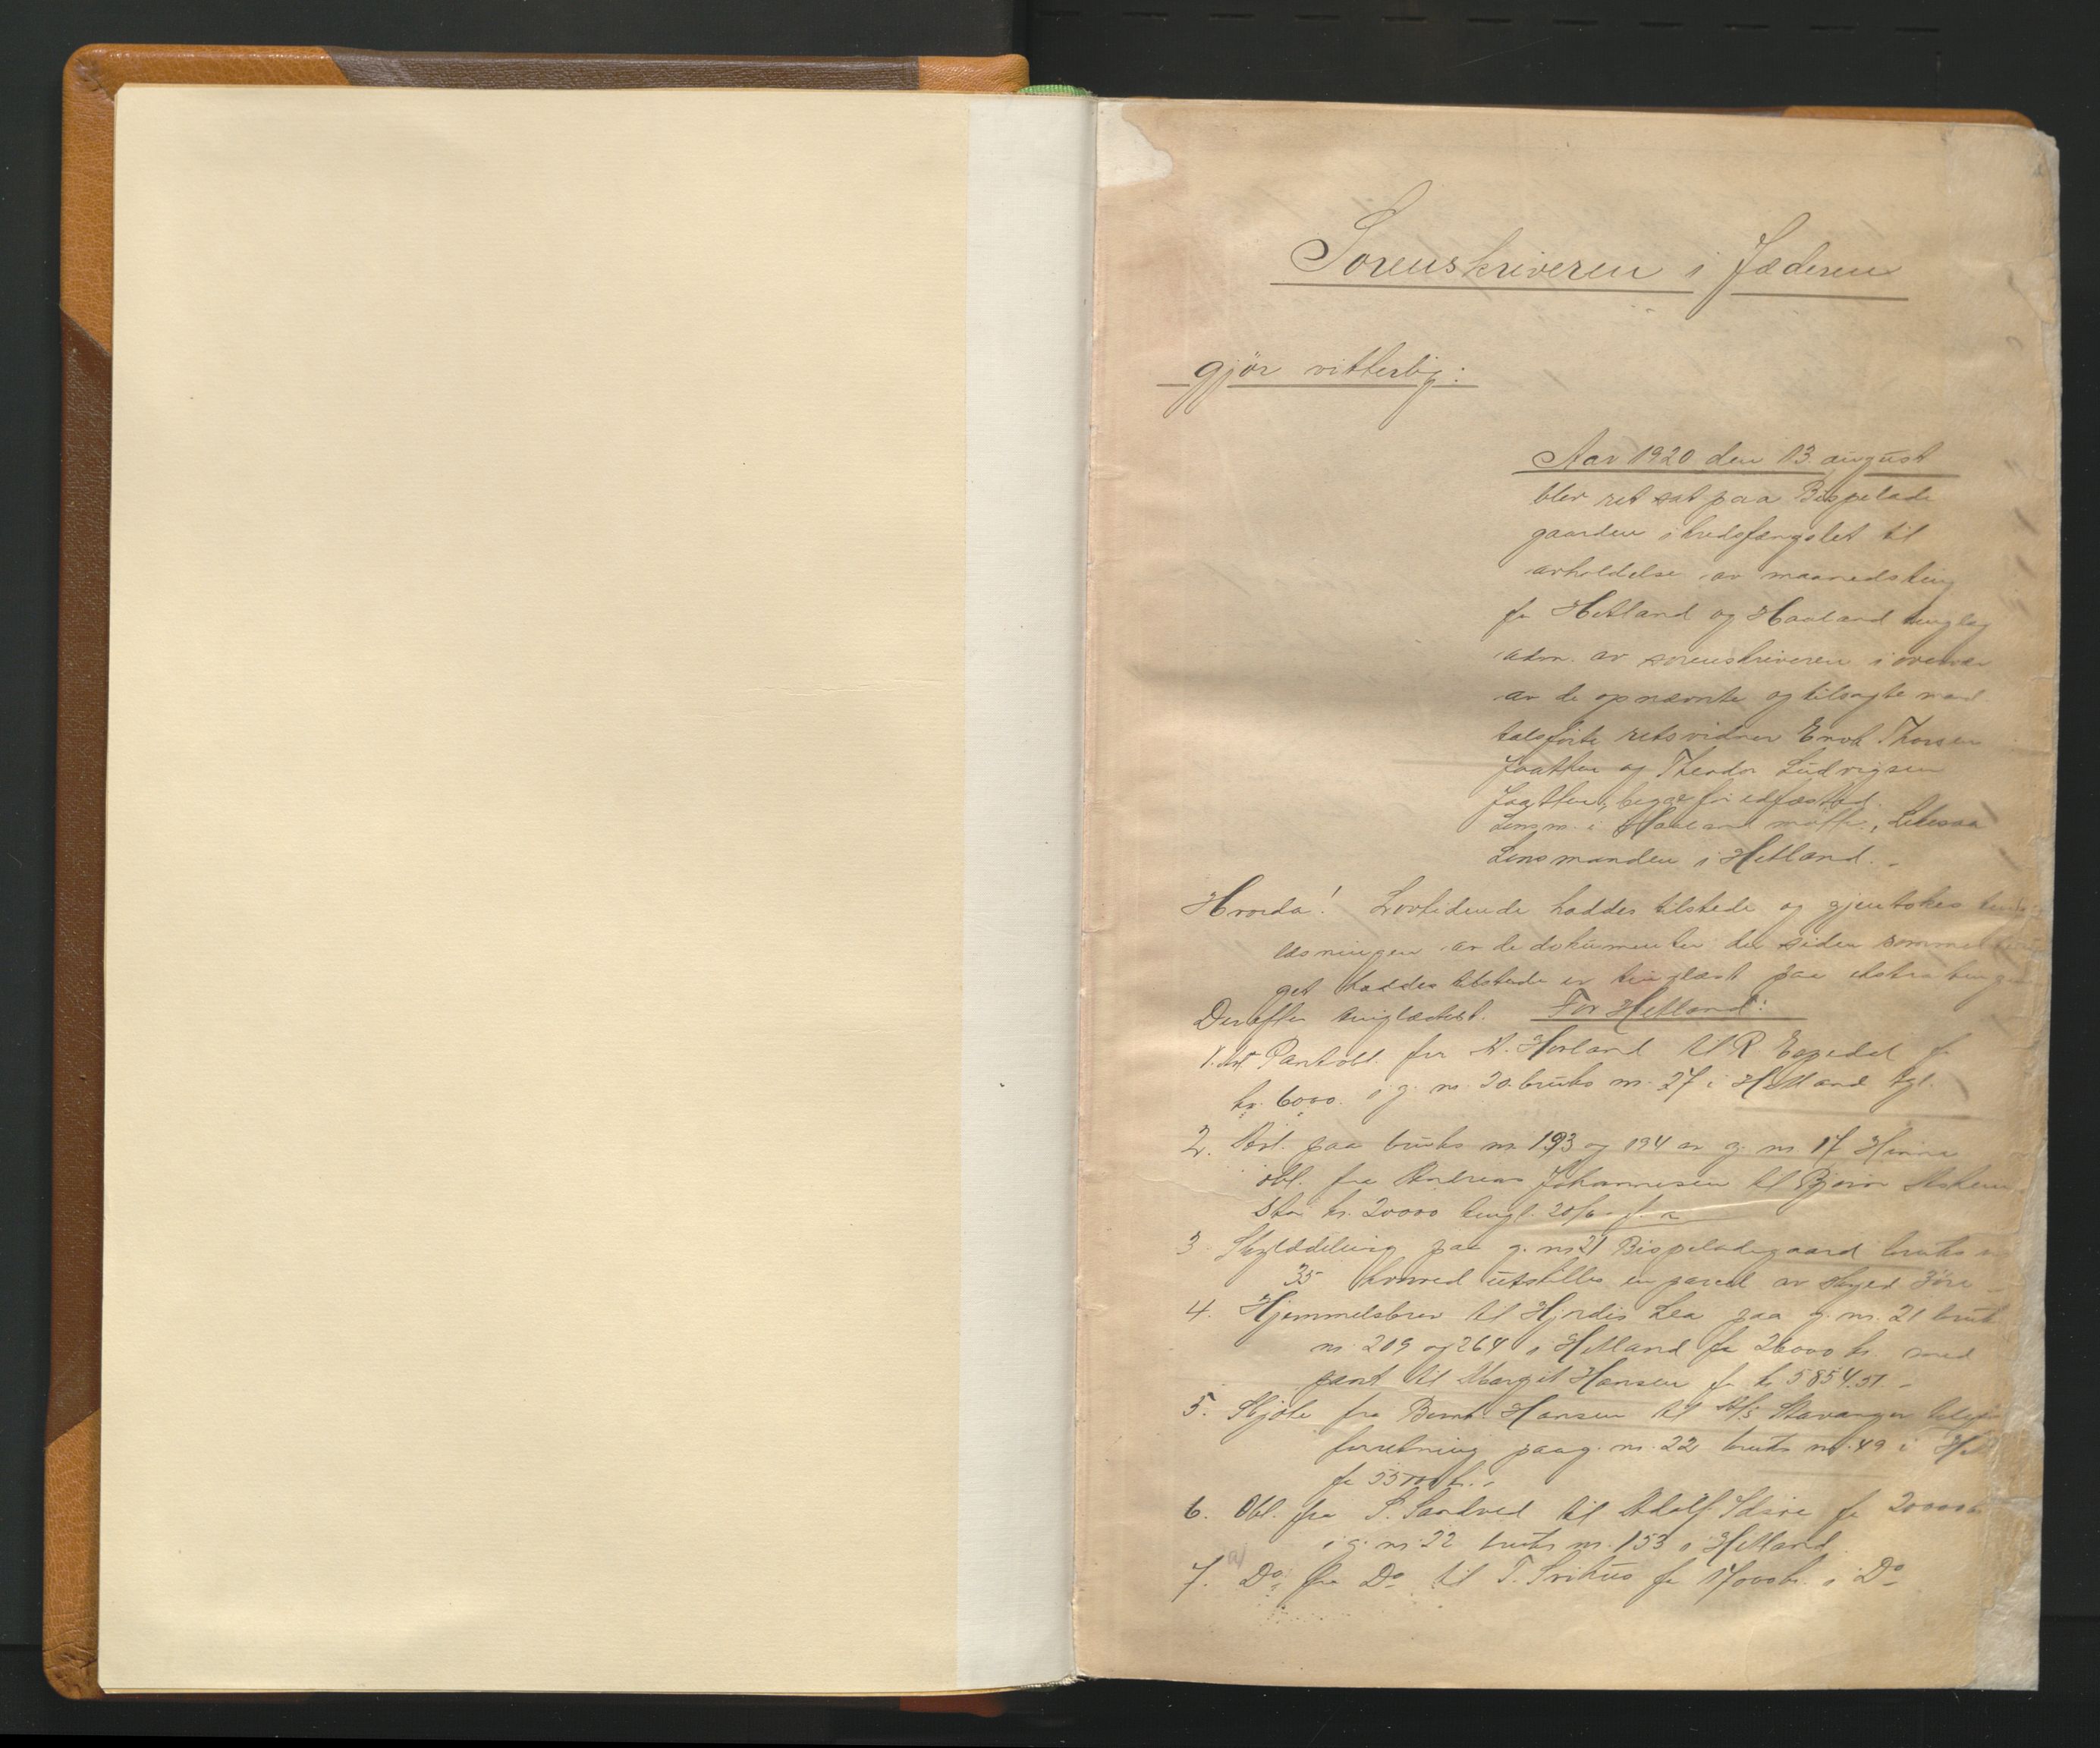 Sorenskriveren i Jæderen
gjør vitterlig:
Aar 1920 den 13. august
blev ret sat paa Bispelade
gaarden i kredsfængslet til
avholdelse av maanedsting
for Hetland og Haaland tinglag
adm. av sorenskriveren i overvær
av de opnævnte og tilsagte mand
talsførte retsvidner Enok Thorsen
Jaatten og Theodor Ludvigsen
Jaatten, begge før edfæsted.
Lensm. i Haaland møtte,
Lensmanden i Hetland. -
Hvorda! Lovtidende haddes tilstede og gjentokes
læsningen av de dokumenter der siden
get haddes tilstede er tinglæst paa ekstrating
Derefter tinglæstest. For Hetland:
1. Pantobl. fra A. Horland til R. Egedal f.
kr. 6000. i g. nr. 20 bruks nr. 27 i Hetland tgl.
2. paa bruks nr. 193 og 194 av g. nr. 17 Hinna
obl. fra Andreas Johannesen til Bjarne
kr. 20000 tingl. 20/6
3. Skylddeling paa g. nr. 21 Bispeladegaard bruks nr
35 hvorved utskilles en parcel av skyld 3 øre
4. Hjemmelsbrev til Hjrdis Lea paa g. nr. 21 bruks
nr. 209 og 264 i Hetland for 26000 kr. med
pant til Margit Hansen for kr 5854.51 -
5. Skjøte fra Bernt Hansen til A/S Stavanger
forretning paa g. nr. 22 bruks nr. 49 i Het
for 55000 kr. -
6. Obl. fra S. Sandved til Adolf Idsøe for 20000 kr
i g. nr. 22 bruks nr. 153 i Hetland
7. a) Do. fra Do. til T. Svihus for 17000 kr. i Do